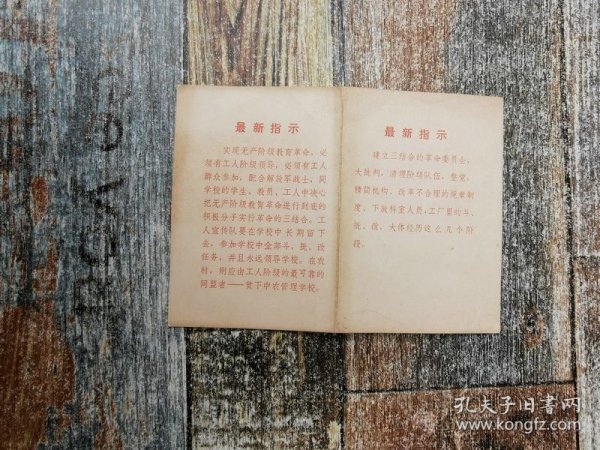 最新指示
实现无产阶级教育革命，必
须有工人阶级领导，必须有工人
群众参加，配合解放军战士，同
学校的学生、教员、工人中决心
把无产阶级教育革命进行到底的
积极分子实行革命的三结合。工
人宣传队要在学校中长期留下
去，参加学校中全部斗、批、改
任务，并且永远领导学校。在农
村，则应由工人阶级的最可靠的
同盟者——贫下中农管理学校。
最新指示
建立三结合的革命委员会，
大批判，清理阶级队伍，整党，
精简机构、改革不合理的规章制
度、下放科室人员，工厂里的斗、
批、改，大体经历这么几个阶
段。
孔夫子旧书网
www.kongfz.com